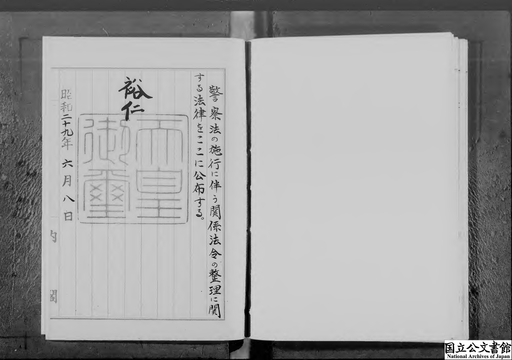 警察法の施行に伴う関係法令の整理に関
する法律をここに公布する。
裕仁
天皇
御璽
昭和二十九年六月八日
内
閣
国立公文書館
National Archives of Japan